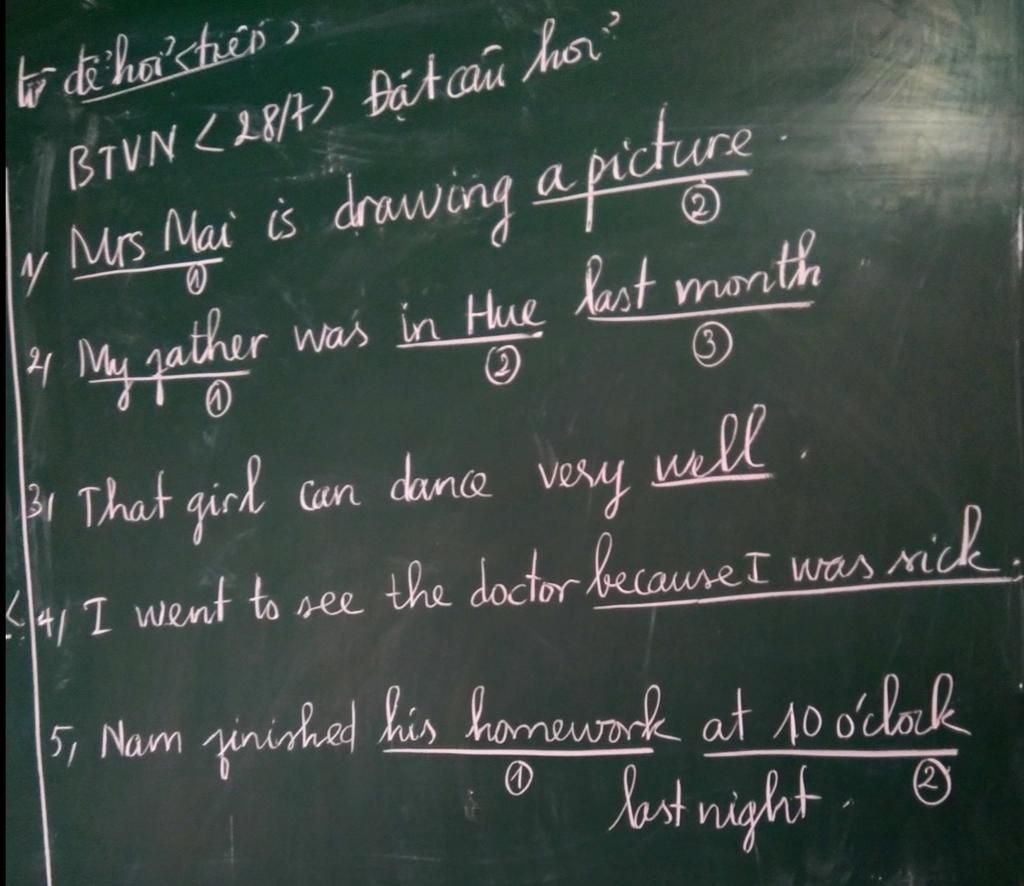 từ để hỏi <tiếp>
BTVN <28/7> Đặt câu hỏi?
1/ Mrs Mai is drawing a picture.
① ②
2/ My father was in Hue last month
① ② ③
3/ That girl can dance very well.
4/ I went to see the doctor because I was sick.
5, Nam finished his homework at 10 o'clock
① ②
last night.